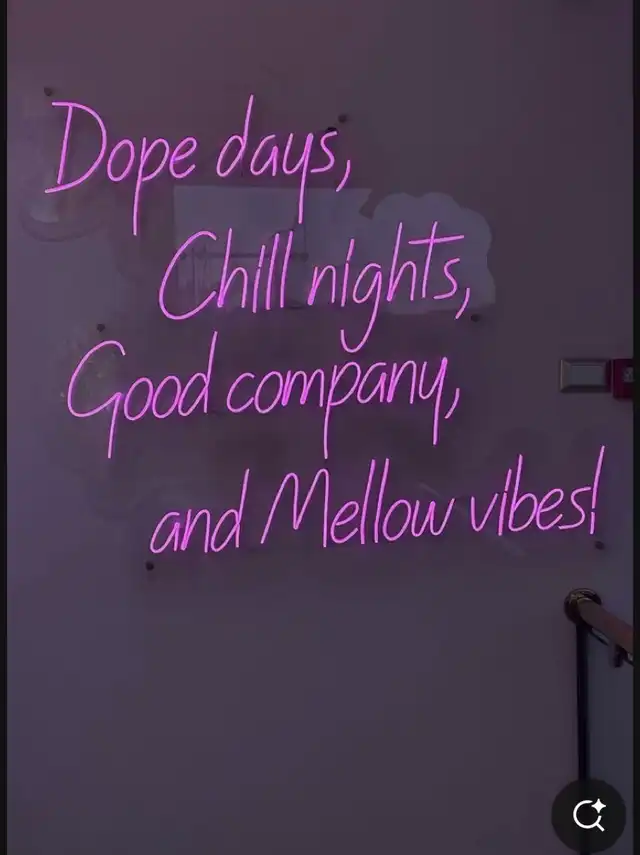 Dope days,
Chill nights,
Good company,
and Mellow vibes!